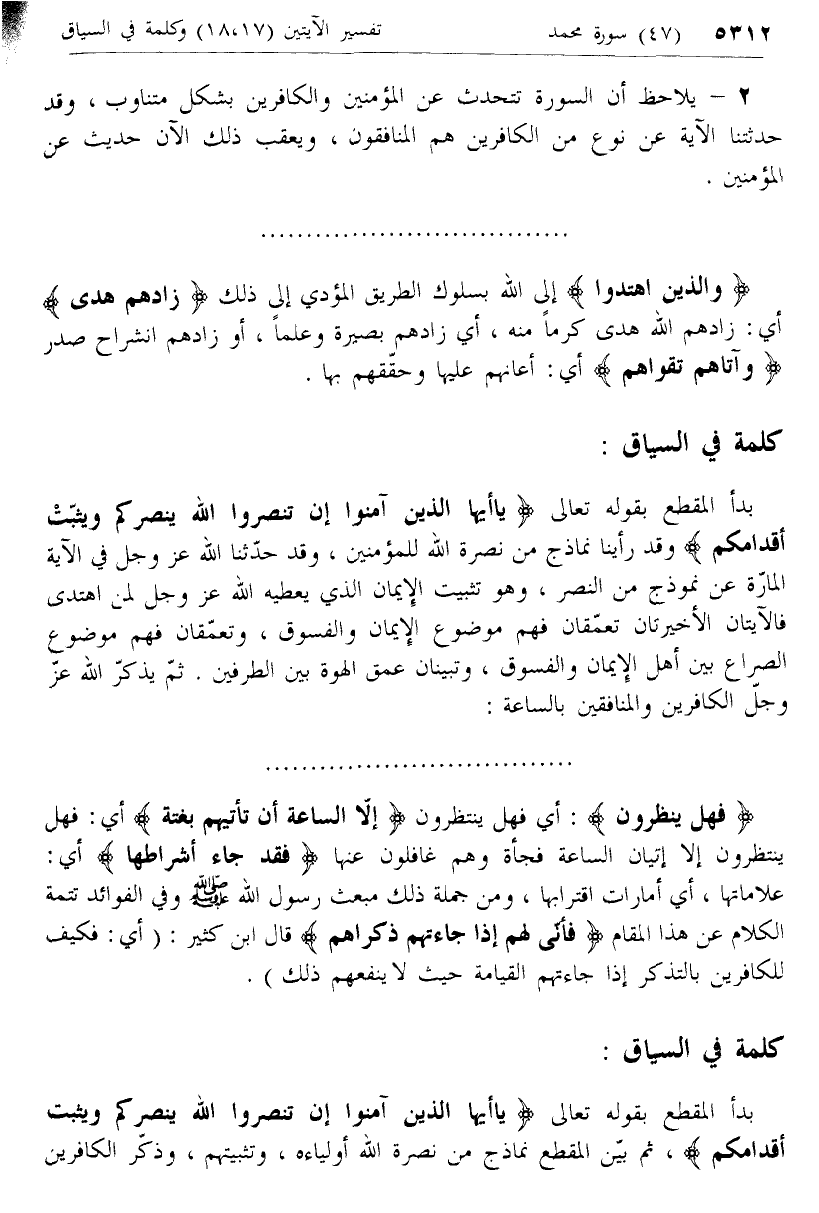 ٥٣١٢ (٤٧) سورة محمد تفسير الآيتين (١٧،١٨) وكلمة في السياق
٢ – يلاحظ أن السورة تتحدث عن المؤمنين والكافرين بشكل متناوب ، وقد
حدثتنا الآية عن نوع من الكافرين هم المنافقون ، ويعقب ذلك الآن حديث عن
المؤمنين .
................................
﴿ والذين اهتدوا ﴾ إلى الله بسلوك الطريق المؤدي إلى ذلك ﴿ زادهم هدى ﴾
أي : زادهم الله هدى كرماً منه ، أي زادهم بصيرة وعلماً ، أو زادهم انشراح صدر
﴿ وآتاهم تقواهم ﴾ أي : أعانهم عليها وحقّقهم بها .
كلمة في السياق :
بدأ المقطع بقوله تعالى ﴿ ياأيها الذين آمنوا إن تنصروا الله ينصركم ويثبّتْ
أقدامكم ﴾ وقد رأينا نماذج من نصرة الله للمؤمنين ، وقد حدّثنا الله عز وجل في الآية
المارّة عن نموذج من النصر ، وهو تثبيت الإيمان الذي يعطيه الله عز وجل لمن اهتدى
فالآيتان الأخيرتان تعمّقان فهم موضوع الإيمان والفسوق ، وتعمّقان فهم موضوع
الصراع بين أهل الإيمان والفسوق ، وتبينان عمق الهوة بين الطرفين . ثمّ يذكرّ الله عزّ
وجلّ الكافرين والمنافقين بالساعة :
................................
﴿ فهل ينظرون ﴾ : أي فهل ينتظرون ﴿ إلّا الساعة أن تأتيهم بغتة ﴾ أي : فهل
ينتظرون إلا إتيان الساعة فجأة وهم غافلون عنها ﴿ فقد جاء أشراطها ﴾ أي :
علاماتها ، أي أمارات اقترابها ، ومن جملة ذلك مبعث رسول الله ﷺ وفي الفوائد تتمة
الكلام عن هذا المقام ﴿ فأنّى لهم إذا جاءتهم ذكراهم ﴾ قال ابن كثير : ( أي : فكيف
للكافرين بالتذكر إذا جاءتهم القيامة حيث لا ينفعهم ذلك ) .
كلمة في السياق :
بدأ المقطع بقوله تعالى ﴿ ياأيها الذين آمنوا إن تنصروا الله ينصركم ويثبت
أقدامكم ﴾ ، ثم بيّن المقطع نماذج من نصرة الله أولياءه ، وتثبيتهم ، وذكّر الكافرين